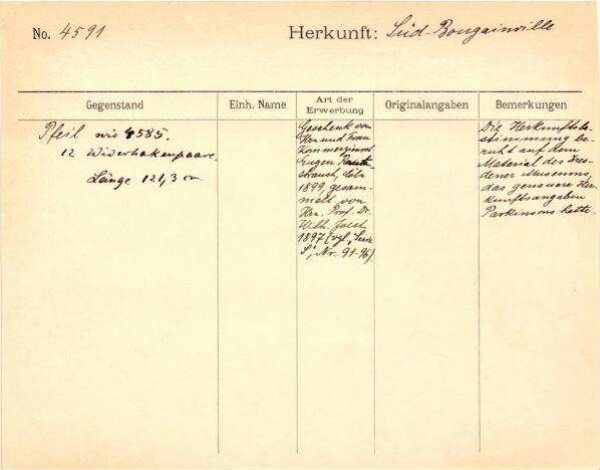 No. 4591
Herkunft: Süd-Bougainville
Gegenstand
Einh. Name
Art der Erwerbung
Originalangaben
Bemerkungen
Pfeil wie 4585.
12 Widerhakenpaare.
Länge 121,3 cm
Geschenk von
Herr und Frau
Kommerzienrat
Eugen Rauten-
strauch, Cöln
1899, gesam-
melt von
Hrn. Prof. Dr.
Wilh. Joest
1897 (vgl.
Nr. 91-96)
Die Herkunftsbe-
stimmung be-
ruht auf dem
Material des Dres-
dener Museums,
das genauere Her-
kunftsangaben
Parkinsons hatte.